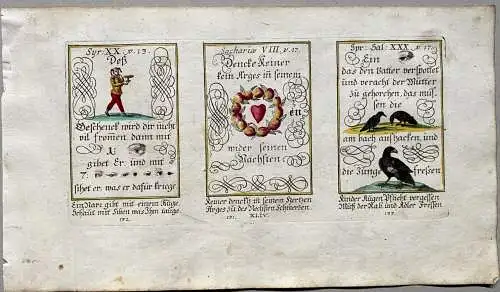 Syr. XX. v. 13.
Deß
Geschenck wird dir nicht
vil fromen dann mit
1
gibet Er und mit
7.
sihet er was er dafür kriege
Ein Narr gibt mit einem Auge
Schaut mit Siben was Ihm tauge
172.
Zachariæ VIII. v. 17.
Dencke Keiner
kein Arges in seinem
en
wider seinen
Nächsten
Keiner denck in seinem Hertzen
Arges zu des Nechsten Schmertzen
171. XLIV.
Spr. Sal. XXX. v. 17.
Ein
das den Vatter verspottet
und veracht der Mutter
Zu gehorchen, das müs-
sen die
am bach aus hacken, und
die Junge fressen
Kinder Augen Pflicht vergessen
Müß der Rab und Adler Fressen